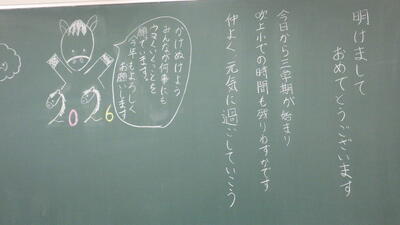 明けまして
おめでとうございます
今日から三学期が始まり
吹上小での時間も残りわずかです
仲よく元気に過ごしていこう
かけぬけよう
みんなが何事にも
ウマくいくことを
願でいます。
今年もよろしく
お願いします
2026